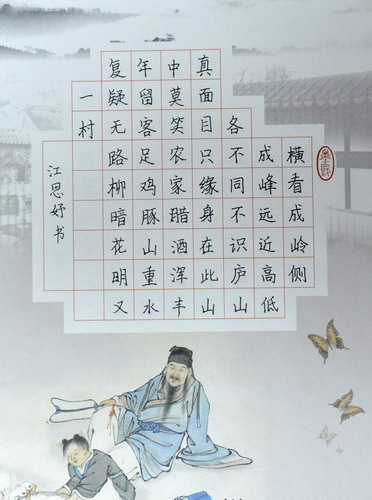 横看成岭侧
成峰远近高低
各不同不识庐山
真面目只缘身在此山
中莫笑农家腊酒浑丰
年留客足鸡豚山重水
复疑无路柳暗花明又
一村
江思妤书